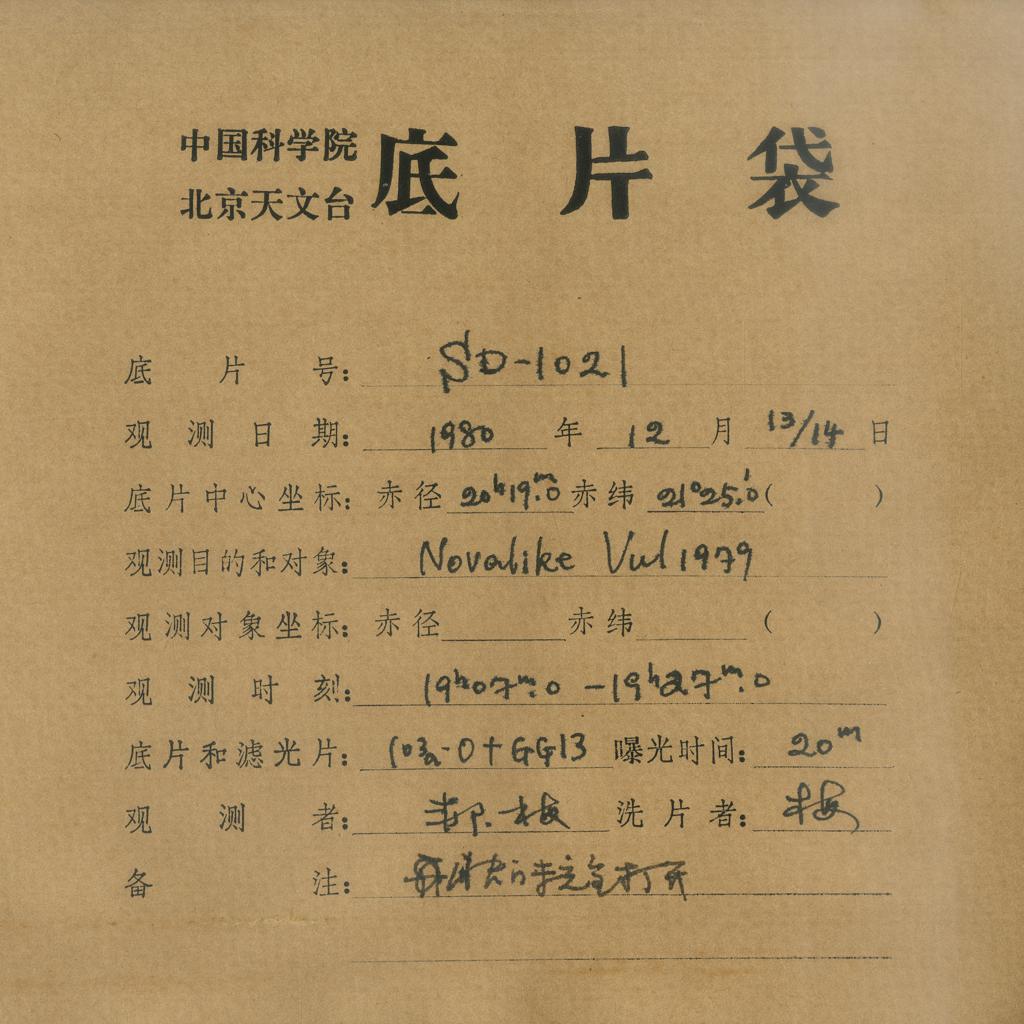 中国科学院
北京天文台
底片袋
底片号: SD-1021
观测日期: 1980年12月13/14日
底片中心坐标: 赤径20ʰ19ᵐ.0赤纬21°25′.0( )
观测目的和对象: Novalike Vul 1979
观测对象坐标: 赤径 赤纬 ( )
观测时刻: 19ʰ07ᵐ.0-19ʰ27ᵐ.0
底片和滤光片: 103a-O+GG13 曝光时间: 20ᵐ
观测者: 郝.梅 洗片者: 梅
备注: 全打开